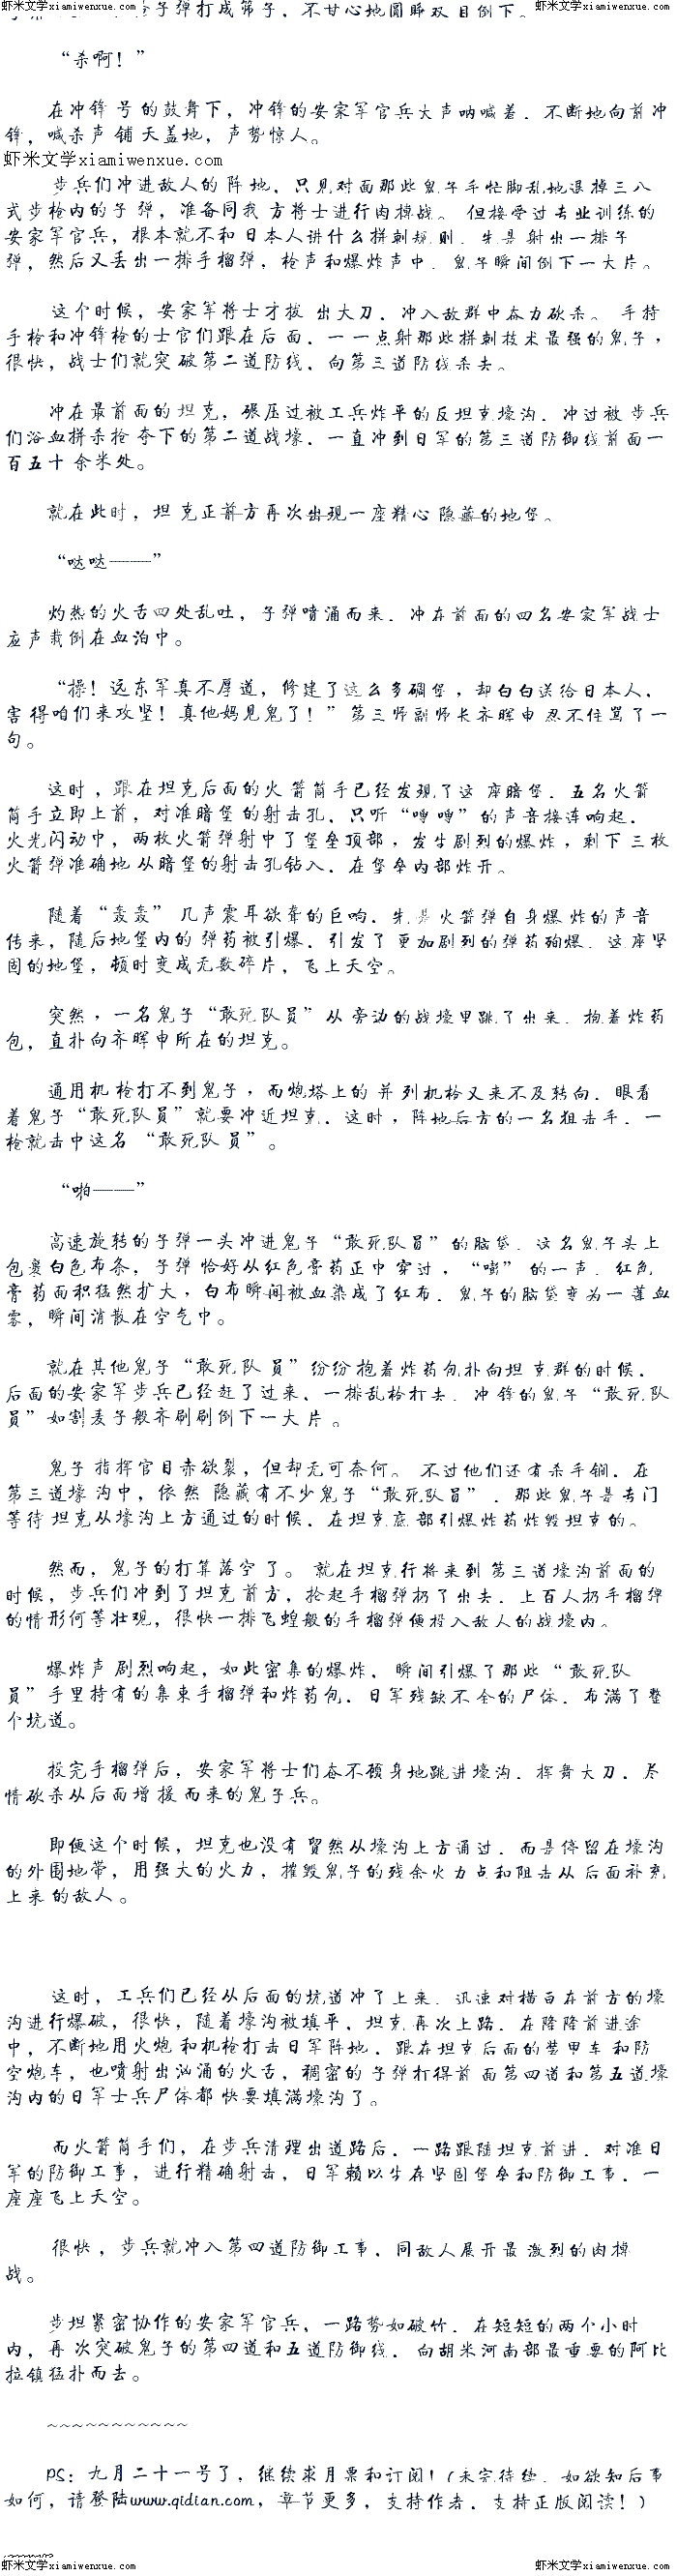 虾米文学xiamiwenxue.com 虾米文学xiamiwenxue.com
枪子弹打成筛子，不甘心地圆睁双目倒下。
“杀啊！”
在冲锋号的鼓舞下，冲锋的安家军官兵大声呐喊着，不断地向前冲
锋，喊杀声铺天盖地，声势惊人。
虾米文学xiamiwenxue.com
步兵们冲进敌人的阵地，只见对面那些鬼子手忙脚乱地退掉三八
式步枪内的子弹，准备同我方将士进行肉搏战。但接受过专业训练的
安家军官兵，根本就不和日本人讲什么拼刺规则，先是射出一排子
弹，然后又丢出一排手榴弹，枪声和爆炸声中，鬼子瞬间倒下一大片。
这个时候，安家军将士才拔出大刀，冲入敌群中奋力砍杀。手持
手枪和冲锋枪的士官们跟在后面，一一点射那些拼刺技术最强的鬼子，
很快，战士们就突破第二道防线，向第三道防线杀去。
冲在最前面的坦克，碾压过被工兵炸平的反坦克壕沟，冲过被步兵
们浴血拼杀抢夺下的第二道战壕，一直冲到日军的第三道防御线前面一
百五十余米处。
就在此时，坦克正前方再次出现一座精心隐藏的地堡。
“哒哒———”
灼热的火舌四处乱吐，子弹喷涌而来，冲在前面的四名安家军战士
应声栽倒在血泊中。
“操！远东军真不厚道，修建了这么多碉堡，却白白送给日本人，
害得咱们来攻坚！真他妈见鬼了！”第三师副师长齐晖申忍不住骂了一
句。
这时，跟在坦克后面的火箭筒手已经发现了这座暗堡，五名火箭
筒手立即上前，对准暗堡的射击孔，只听“嗵嗵”的声音接连响起，
火光闪动中，两枚火箭弹射中了堡垒顶部，发生剧烈的爆炸，剩下三枚
火箭弹准确地从暗堡的射击孔钻入，在堡垒内部炸开。
随着“轰轰”几声震耳欲聋的巨响，先是火箭弹自身爆炸的声音
传来，随后地堡内的弹药被引爆，引发了更加剧烈的弹药殉爆，这座坚
固的地堡，顿时变成无数碎片，飞上天空。
突然，一名鬼子“敢死队员”从旁边的战壕里跳了出来，抱着炸药
包，直扑向齐晖申所在的坦克。
通用机枪打不到鬼子，而炮塔上的并列机枪又来不及转向，眼看
着鬼子“敢死队员”就要冲近坦克，这时，阵地后方的一名狙击手，一
枪就击中这名“敢死队员”。
“啪———”
高速旋转的子弹一头冲进鬼子“敢死队员”的脑袋，这名鬼子头上
包裹白色布条，子弹恰好从红色膏药正中穿过，“嘭”的一声，红色
膏药面积猛然扩大，白布瞬间被血染成了红布，鬼子的脑袋变为一蓬血
雾，瞬间消散在空气中。
就在其他鬼子“敢死队员”纷纷抱着炸药包扑向坦克群的时候，
后面的安家军步兵已经赶了过来，一排乱枪打去，冲锋的鬼子“敢死队
员”如割麦子般齐刷刷倒下一大片。
鬼子指挥官目赤欲裂，但却无可奈何。不过他们还有杀手锏，在
第三道壕沟中，依然隐藏有不少鬼子“敢死队员”，那些鬼子是专门
等待坦克从壕沟上方通过的时候，在坦克底部引爆炸药炸毁坦克的。
然而，鬼子的打算落空了。就在坦克行将来到第三道壕沟前面的
时候，步兵们冲到了坦克前方，抡起手榴弹扔了出去，上百人扔手榴弹
的情形何等壮观，很快一排飞蝗般的手榴弹便投入敌人的战壕内。
爆炸声剧烈响起，如此密集的爆炸，瞬间引爆了那些“敢死队
员”手里持有的集束手榴弹和炸药包，日军残缺不全的尸体，布满了整
个坑道。
投完手榴弹后，安家军将士们奋不顾身地跳进壕沟，挥舞大刀，尽
情砍杀从后面增援而来的鬼子兵。
即便这个时候，坦克也没有贸然从壕沟上方通过，而是停留在壕沟
的外围地带，用强大的火力，摧毁鬼子的残余火力点和阻击从后面补充
上来的敌人。
这时，工兵们已经从后面的坑道冲了上来，迅速对横亘在前方的壕
沟进行爆破，很快，随着壕沟被填平，坦克再次上路，在隆隆前进途
中，不断地用火炮和机枪打击日军阵地，跟在坦克后面的装甲车和防
空炮车，也喷射出汹涌的火舌，稠密的子弹打得前面第四道和第五道壕
沟内的日军士兵尸体都快要填满壕沟了。
而火箭筒手们，在步兵清理出道路后，一路跟随坦克前进，对准日
军的防御工事，进行精确射击，日军赖以生存坚固堡垒和防御工事，一
座座飞上天空。
很快，步兵就冲入第四道防御工事，同敌人展开最激烈的肉搏
战。
步坦紧密协作的安家军官兵，一路势如破竹，在短短的两个小时
内，再次突破鬼子的第四道和五道防御线，向胡米河南部最重要的阿比
拉镇猛扑而去。
~~~~~~~~~~~
PS：九月二十一号了，继续求月票和订阅！(未完待续，如欲知后事
如何，请登陆www.qidian.com，章节更多，支持作者，支持正版阅读！)
虾米文学xiamiwenxue.com 虾米文学xiamiwenxue.com